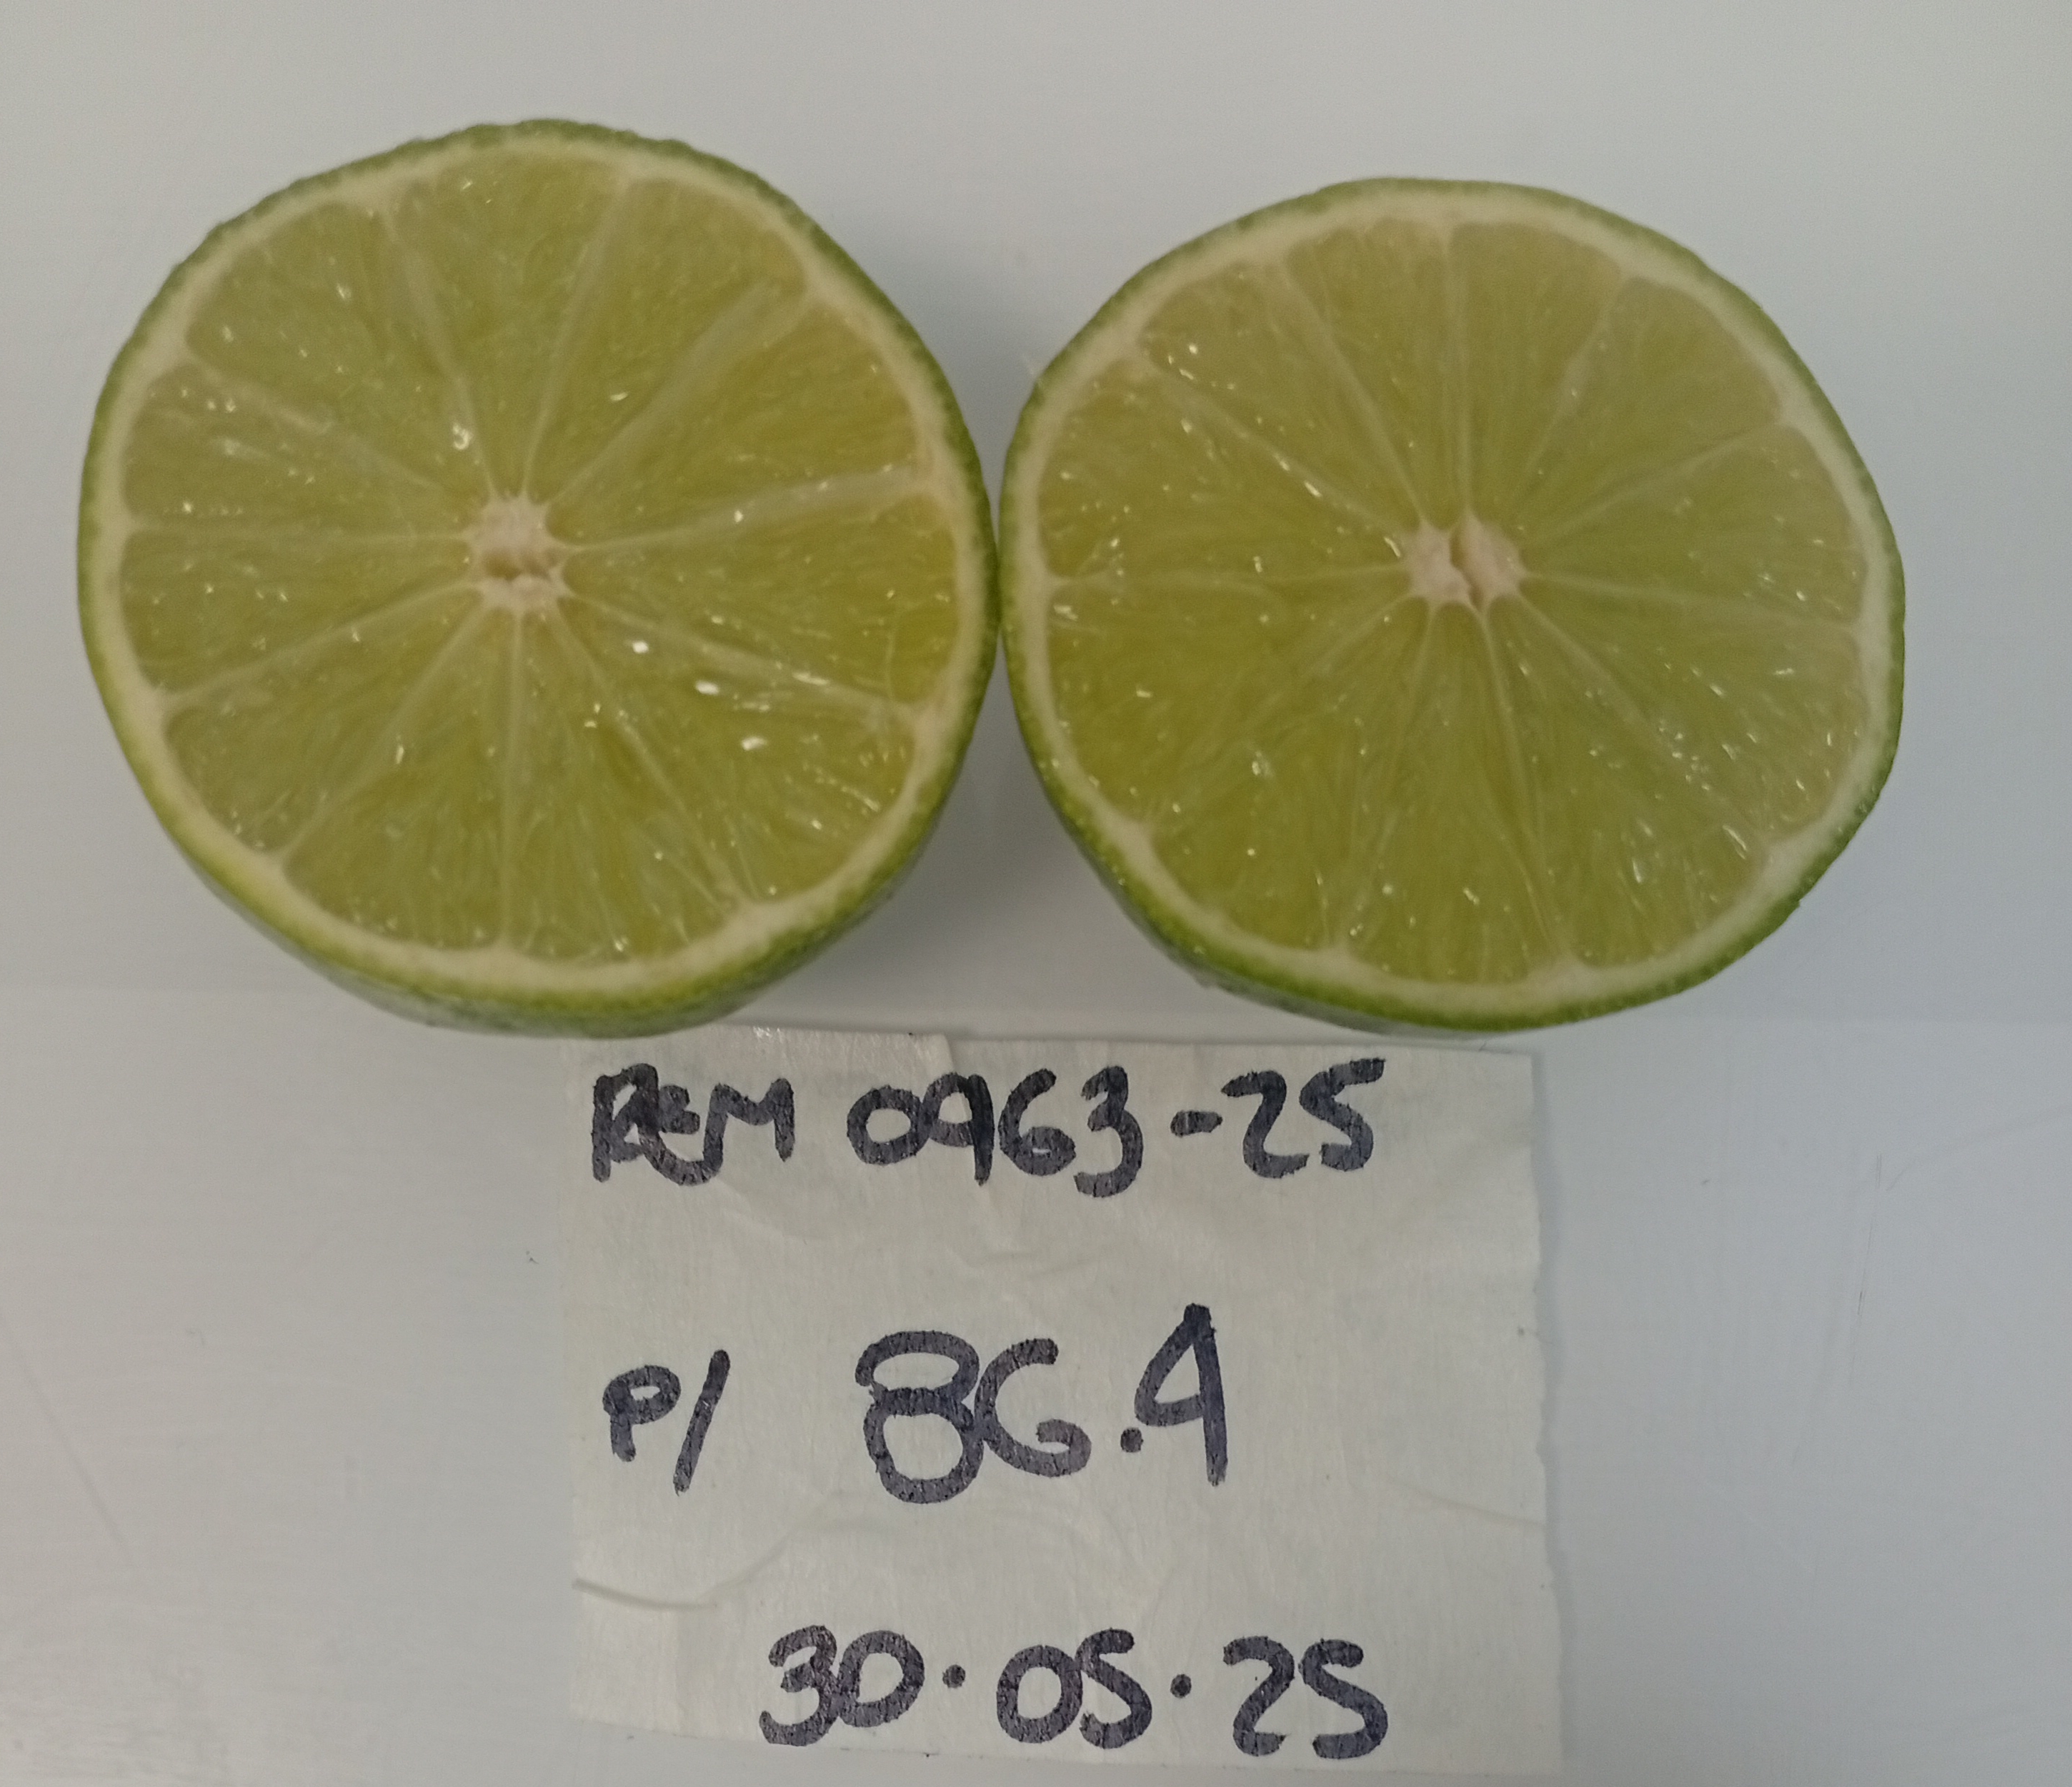 REM 0963-25
P/ 86.4
30.05.25